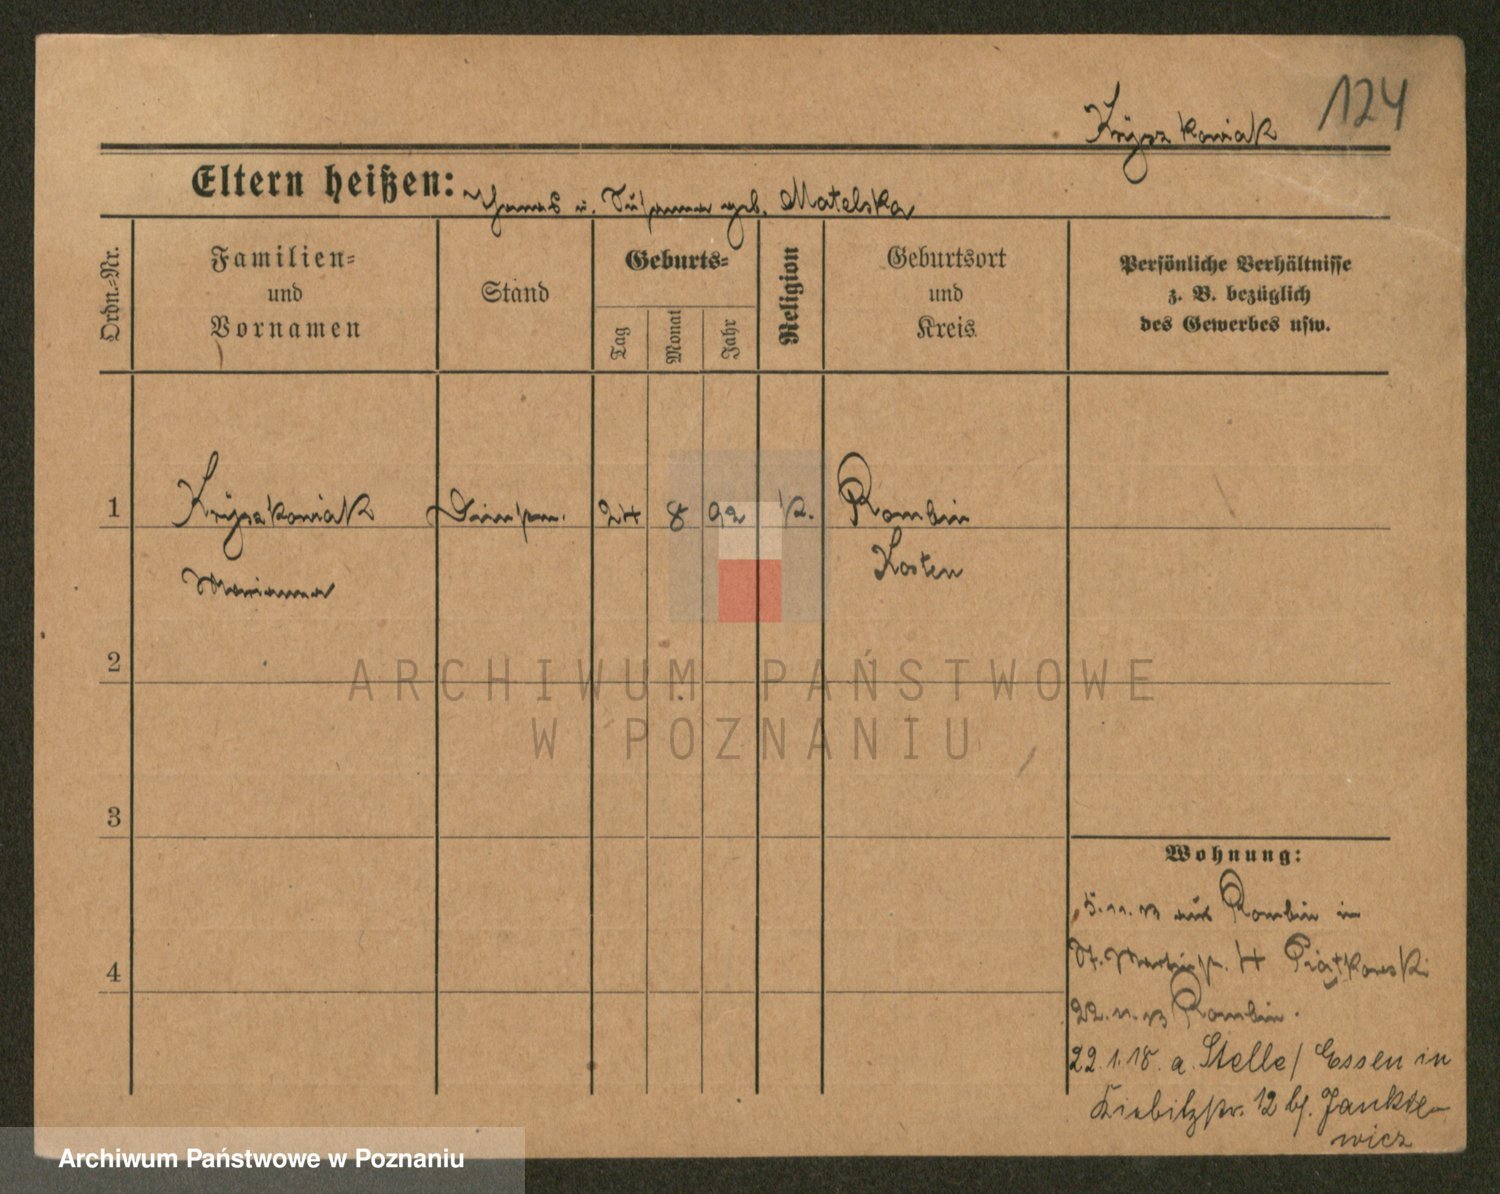 Kryszkowiak 124
Eltern heißen: Thomas u. Susanna geb. Matelska
Ordn.-Nr.
Familien-
und
Vornamen
Stand
Geburts-
Tag
Monat
Jahr
Religion
Geburtsort
und
Kreis
Persönliche Verhältnisse
z. B. bezüglich
des Gewerbes usw.
1 Kryszkowiak 24 8 92 k. Rombin
Marianna Kosten
2
3
4
Wohnung:
5.11.13 aus Rombin in
St. Martinstr. Piątkowski
22.11.13 Rombin.
22.1.18. a. Stelle/Essen in
Kiebitzstr. 12 bj. Jankie-
wicz
ARCHIWUM PAŃSTWOWE
W POZNANIU
Archiwum Państwowe w Poznaniu